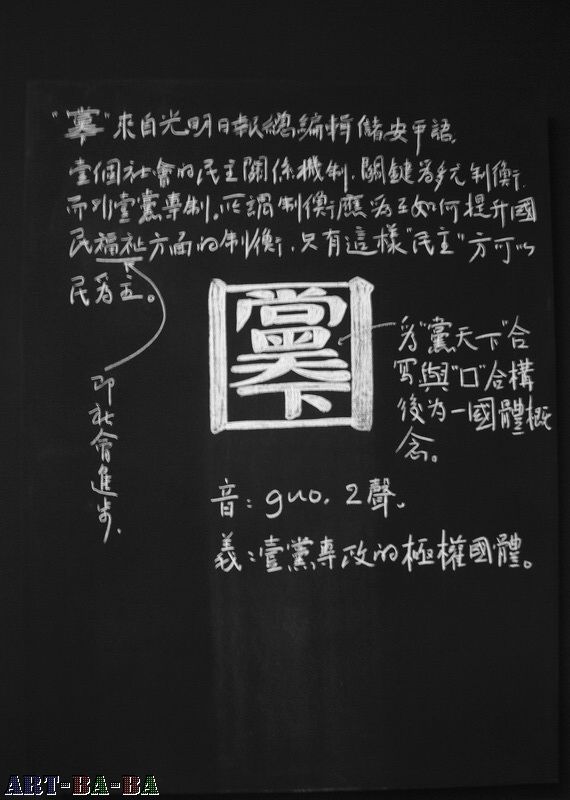 "黨"來自光明日報總編輯儲安平語,
壹個社會的民主關係機制,關鍵為多元制衡
而非壹黨專制。所謂制衡應為互如何提升國
民福祉方面的制衡,只有這樣"民主"方可以
民為主。
即社會進步.
黨天下
為"黨天下"合
寫與"口"合構
後为一國體概
念。
音: guo. 2聲.
義:壹黨專政的極權國體。
ART-BA-BA